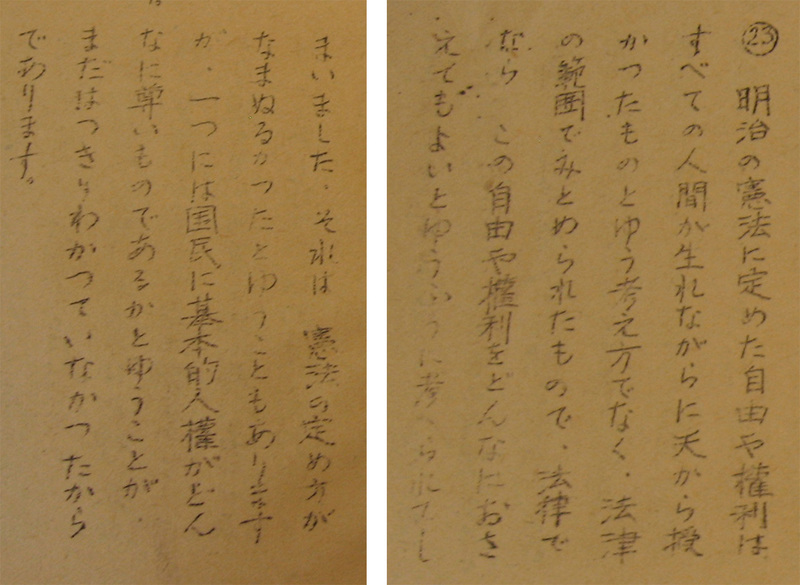 ㉓ 明治の憲法に定めた自由や權利は
すべての人間が生れながらに天から授
かつたものとゆう考え方でなく、法津
の範囲でみとめられたもので、法律で
なら この自由や權利をどんなにおさ
えてもよいとゆうふうに考へられてし
まいました。それは 憲法の定め方が
なまぬるかつたとゆうこともあります
が、一つには国民に基本的人權がどん
なに尊いものであるかとゆうことが、
まだはつきりわかつていなかつたから
であります。